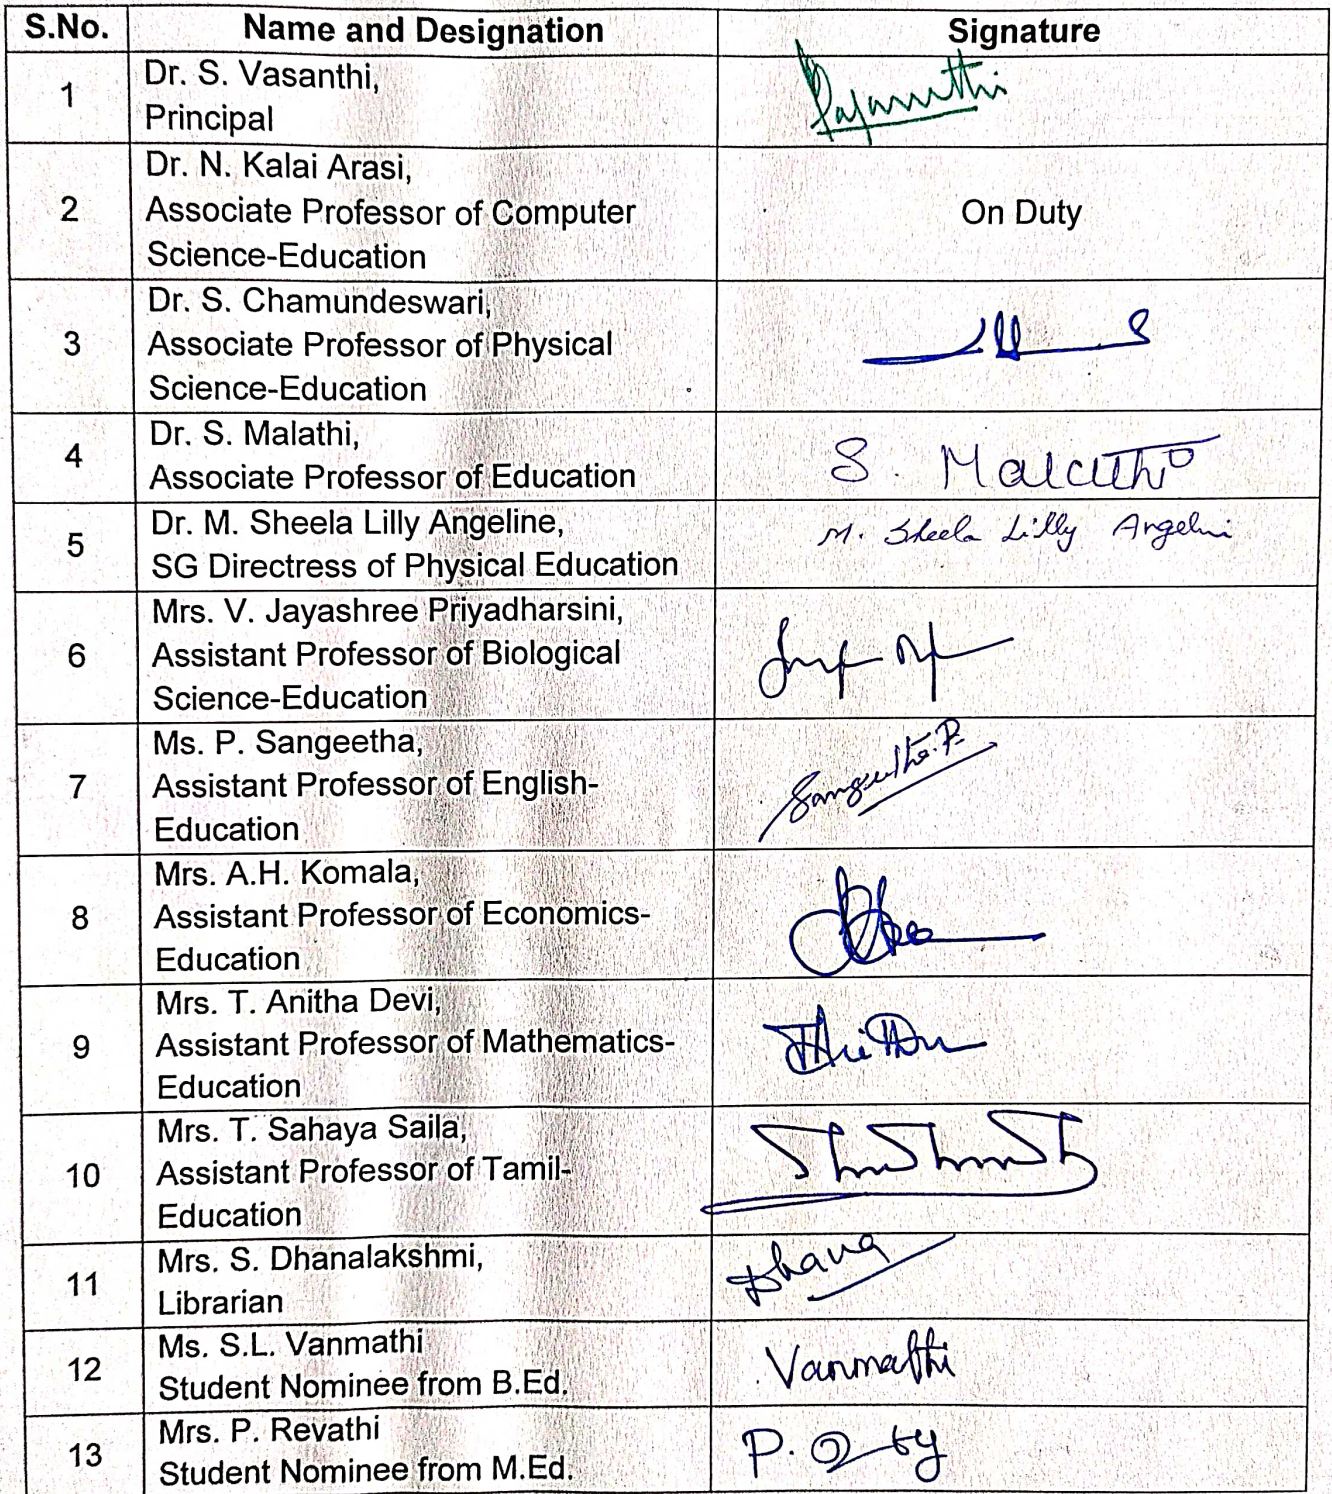 S.No. Name and Designation Signature
1 Dr. S. Vasanthi,
Principal
2 Dr. N. Kalai Arasi,
Associate Professor of Computer On Duty
Science-Education
3 Dr. S. Chamundeswari,
Associate Professor of Physical
Science-Education
4 Dr. S. Malathi, S. Malathi
Associate Professor of Education
5 Dr. M. Sheela Lilly Angeline, M. Sheela Lilly Angeline
SG Directress of Physical Education
6 Mrs. V. Jayashree Priyadharsini,
Assistant Professor of Biological
Science-Education
7 Ms. P. Sangeetha, Sangeetha.P.
Assistant Professor of English-
Education
8 Mrs. A.H. Komala,
Assistant Professor of Economics-
Education
9 Mrs. T. Anitha Devi,
Assistant Professor of Mathematics-
Education
10 Mrs. T. Sahaya Saila,
Assistant Professor of Tamil-
Education
11 Mrs. S. Dhanalakshmi, Dhana
Librarian
12 Ms. S.L. Vanmathi Vanmathi
Student Nominee from B.Ed.
13 Mrs. P. Revathi P.
Student Nominee from M.Ed.